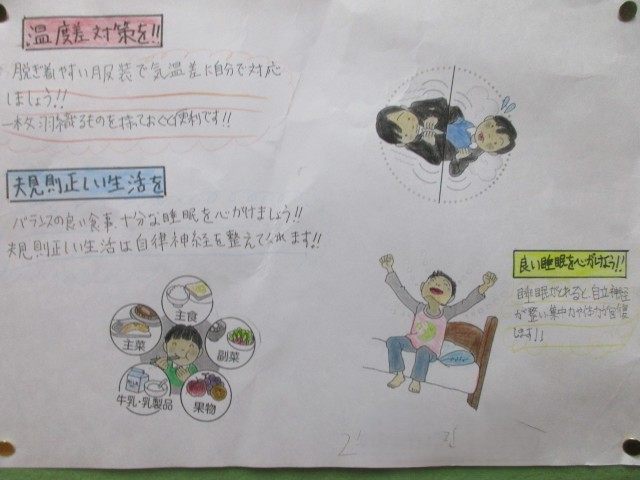 温度差対策を!!
脱ぎ着やすい服装で気温差に自分で対応
しましょう!!
一枚羽織るものを持ておくと便利です!!
規則正しい生活を
バランスの良い食事、十分な睡眠を心がけましょう!!
規則正しい生活は自律神経を整えてくれます!!
主食
主菜
副菜
牛乳・乳製品
果物
良い睡眠を心がけよう!!
睡眠がとれると、自立神経
が整い集中力や体力が回復
します!!